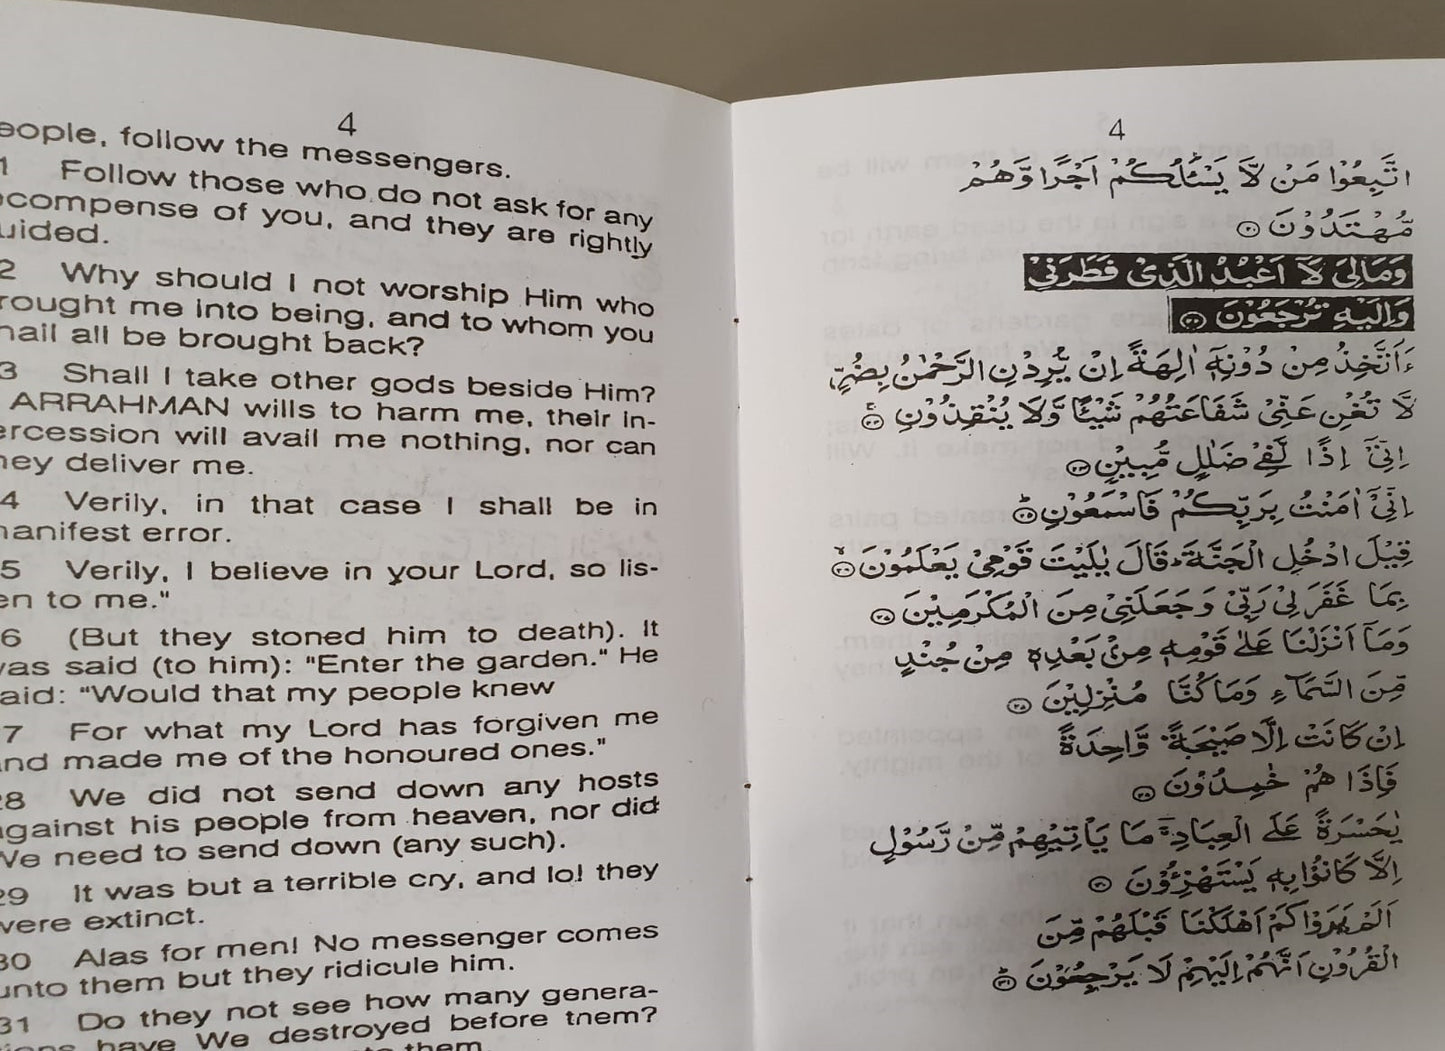 4
eople, follow the messengers.
1 Follow those who do not ask for any
compense of you, and they are rightly
uided.
2 Why should I not worship Him who
rought me into being, and to whom you
hall all be brought back?
3 Shall I take other gods beside Him?
ARRAHMAN wills to harm me, their in-
ercession will avail me nothing, nor can
hey deliver me.
4 Verily, in that case I shall be in
manifest error.
5 Verily, I believe in your Lord, so lis-
en to me."
6 (But they stoned him to death). It
was said (to him): "Enter the garden." He
aid: "Would that my people knew
7 For what my Lord has forgiven me
and made me of the honoured ones."
28 We did not send down any hosts
against his people from heaven, nor did
We need to send down (any such).
29 It was but a terrible cry, and lo! they
were extinct.
30 Alas for men! No messenger comes
unto them but they ridicule him.
31 Do they not see how many genera-
tions have We destroyed before them?
them
4
اتَّبِعُوْا مَنْ لَّا يَسْـَٔلُكُمْ اَجْرًا وَّهُمْ
مُّهْتَدُوْنَ ۝۲۱
وَمَا لِيَ لَآ اَعْبُدُ الَّذِيْ فَطَرَنِيْ
وَاِلَيْهِ تُرْجَعُوْنَ ۝۲۲
ءَاَتَّخِذُ مِنْ دُوْنِهٖٓ اٰلِهَةً اِنْ يُّرِدْنِ الرَّحْمٰنُ بِضُرٍّ
لَّا تُغْنِ عَنِّيْ شَفَاعَتُهُمْ شَيْـًٔا وَّلَا يُنْقِذُوْنِ ۝۲۳
اِنِّيْٓ اِذًا لَّفِيْ ضَلٰلٍ مُّبِيْنٍ ۝۲۴
اِنِّيْٓ اٰمَنْتُ بِرَبِّكُمْ فَاسْمَعُوْنِ ۝۲۵
قِيْلَ ادْخُلِ الْجَنَّةَ ؕ قَالَ يٰلَيْتَ قَوْمِيْ يَعْلَمُوْنَ ۝۲۶
بِمَا غَفَرَ لِيْ رَبِّيْ وَجَعَلَنِيْ مِنَ الْمُكْرَمِيْنَ ۝۲۷
وَمَآ اَنْزَلْنَا عَلٰى قَوْمِهٖ مِنْۢ بَعْدِهٖ مِنْ جُنْدٍ
مِّنَ السَّمَآءِ وَمَا كُنَّا مُنْزِلِيْنَ ۝۲۸
اِنْ كَانَتْ اِلَّا صَيْحَةً وَّاحِدَةً
فَاِذَا هُمْ خٰمِدُوْنَ ۝۲۹
يٰحَسْرَةً عَلَى الْعِبَادِ ۚ مَا يَاْتِيْهِمْ مِّنْ رَّسُوْلٍ
اِلَّا كَانُوْا بِهٖ يَسْتَهْزِءُوْنَ ۝۳۰
اَلَمْ يَرَوْا كَمْ اَهْلَكْنَا قَبْلَهُمْ مِّنَ
الْقُرُوْنِ اَنَّهُمْ اِلَيْهِمْ لَا يَرْجِعُوْنَ ۝۳۱